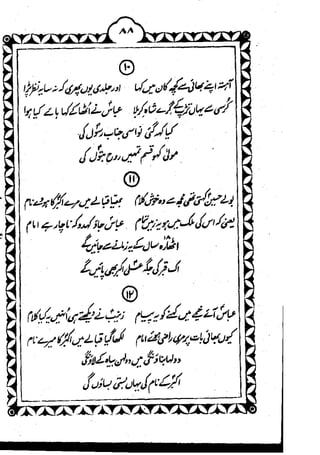 ۸۸
۱۰
آہستہ اپنے بھائی سے کچھ کان میں کہا اور جلدی یوں پھری کہ نہ سایہ نظر پڑا
کرسی سے یہاں تڑپ کے گرے شاہِ کربلا عباسؑ نے اٹھا کے کہا ہائے کیا ہوا
کیا کہہ گئی نواسی جناب رسولؐ کی
مولیٰ کہو قسم تمہیں روح بتولؑ کی
۱۱
بولے حسینؑ کہتی تھی مجھ سے وہ خوش کلام بھیا قبالے میں مرے اکبرؑ کا ہوئے نام
یعنی کہ اس کی ملک میں ہو یہ زمیں تمام عباسؑ جاؤ کہہ دو کہ ناچار ہے امام
اٹھارہ سال کے یہ زمانے سے جائیں گے
اک قبر کی جگہ علی اکبرؑ بھی پائیں گے
۱۲
عباسؑ آئے خیمے میں کہنے کو یہ پیام زینبؑ نے دیکھتے ہی انہیں یہ کیا کلام
کیوں بھائی بات پر مری راضی ہوئے امام لکھا گیا قبالے میں اکبرؑ کا میرے نام
دولہا بناؤنگی میں دولہن بیاہ کے لاؤنگی
اکبرؑ کے نام کی یہاں بستی بساؤں گی